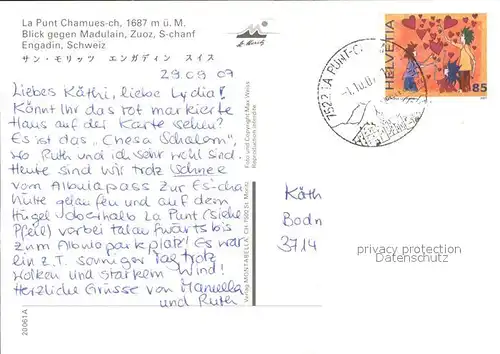 La Punt Chamues-ch, 1687 m ü. M.
Blick gegen Madulain, Zuoz, S-chanf
Engadin, Schweiz
サン・モリッツ エンガディン スイス
29.09.07
Liebes Käthi, liebe Lydia!
Könnt Ihr das rot markierte
Haus auf der Karte sehen?
Es ist das „Chesa Schalern",
wo Ruth und ich sehr wohl sind.
Heute sind wir trotz Schnee
vom Albulapass zur Es-cha
Hütte gelaufen und auf dem
Hügel oberhalb La Punt (siehe
Pfeil) vorbei talauswärts bis
zum Albulaparkplatz! Es war
ein z.T. sonniger Tag trotz
Wolken und starkem Wind!
Herzliche Grüsse von Manuela
und Ruth
Foto und Copyright Max Weiss
Reproduktion interdite
Verlag MONTABELLA, CH-7500 St. Moritz
20061A
St. Moritz
7522 LA PUNT-C
HELVETIA
85
Käth
Bodn
3714
privacy protection
Datenschutz